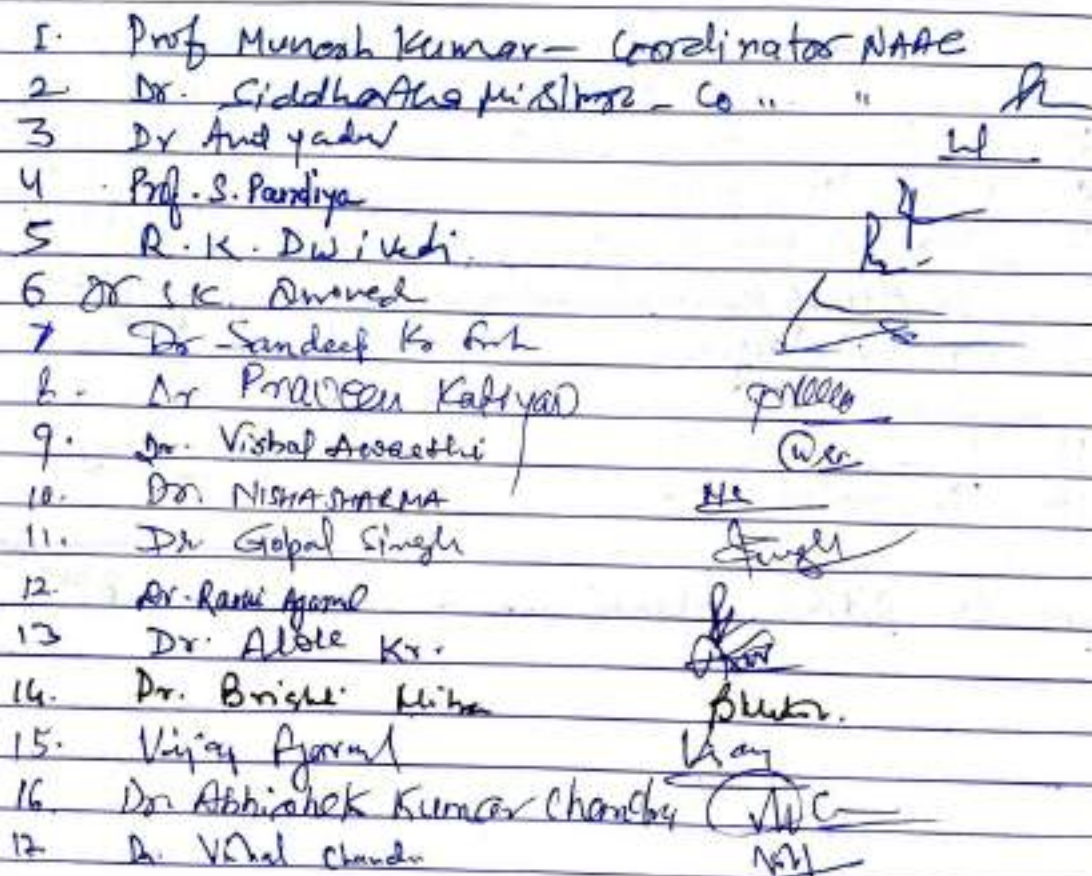 1. Prof Munesh Kumar - Coordinator NAAC
2 Dr. Siddhartha Mishra - Co " "
3 Dr Anil yadav
4 Prof. S. Pandiya
5 R.K. Dwivedi.
6 Dr S.K.
7 Dr Sandeep Kr
8. Dr Praveen Katiyar
9. Dr. Vishal Awasthi
10. Dr. NISHA SHARMA
11. Dr Gopal Singh
12. Dr. Rashi Agarwal
13 Dr. Alok Kr.
14. Dr. Mitra
15. Vijay Agarwal
16. Dr Abhishek Kumar Chandra
17 Dr. Vishal Chandra